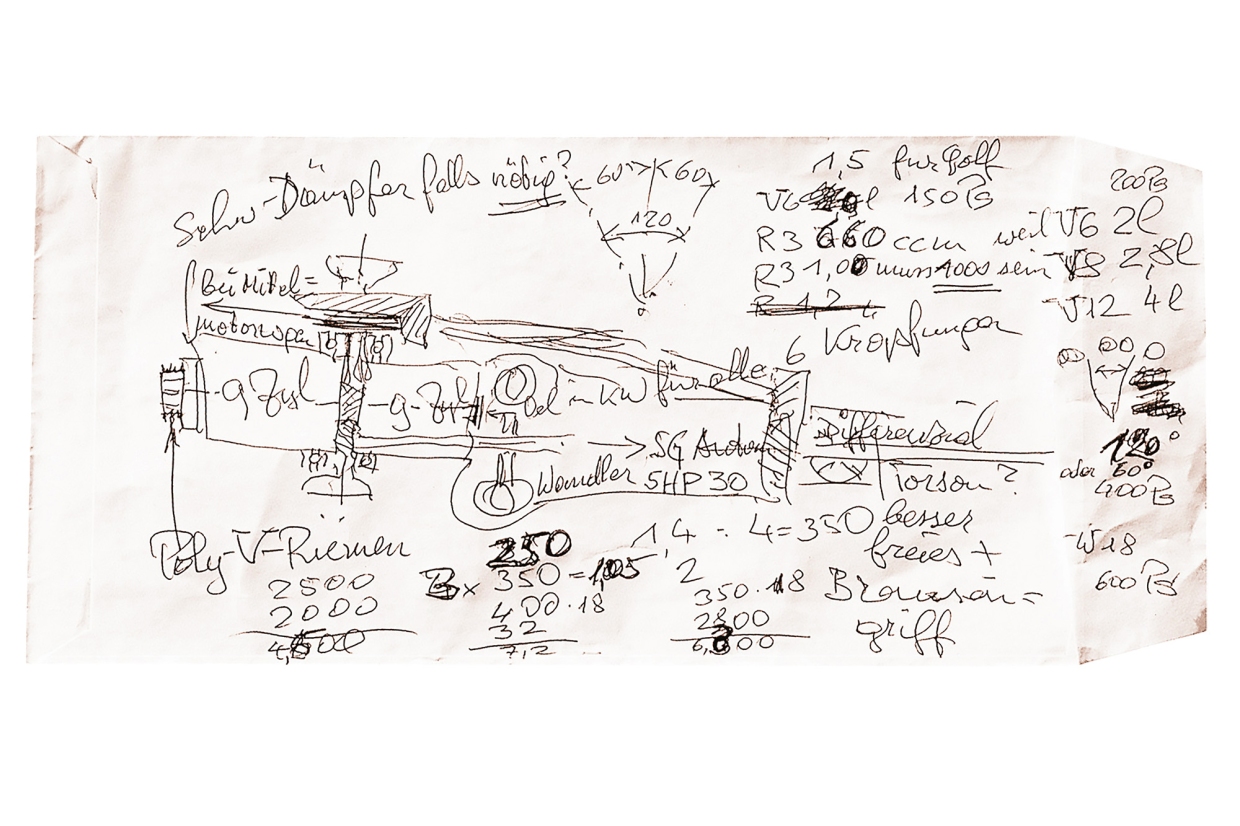 Schw-Dämpfer falls nötig?
60° 60
120
1,5 für Golf
V6 l 150 PS
R3 660 ccm weil V6 2l
R3 1,00 muss 1000 sein
R 1,2
200 PS
V8 2,8l
V12 4l
6 Kröpfungen
bei Mittel=
motorwagen
9 Zyl
9-Zyl
Oel in KW für alle
→ 5G Autom
Wandler 5HP30
Differenzial
Torson?
besser
freies +
Browsoin=
griff
120°
oder 60°
400 PS
W18
600 PS
Poly-V-Riemen
2500
2000
4,500
250
350 = 1,05
400·18
32
7,2
1,4 : 4=350
2
350·18
2800
6,300